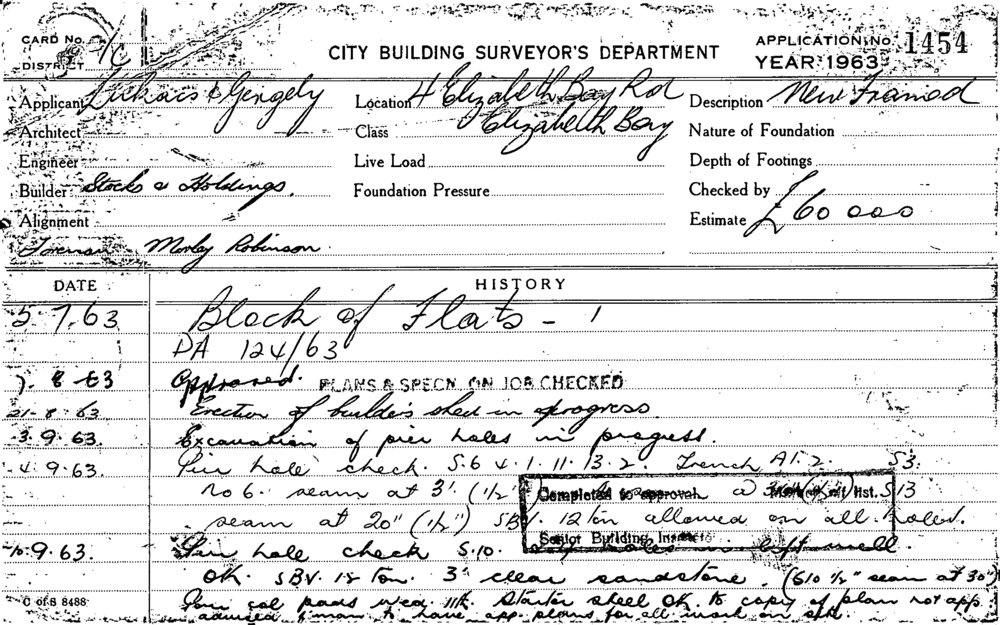 CARD No. 1/C
DISTRICT
CITY BUILDING SURVEYOR'S DEPARTMENT
APPLICATION No. 1454
YEAR 1963
Applicant Lukacs & Gergely
Location 4 Elizabeth Bay Rd
Elizabeth Bay
Description New Framed
Architect
Class
Nature of Foundation
Engineer
Live Load
Depth of Footings
Builder Stocks & Holdings.
Foundation Pressure
Checked by
Alignment
Estimate £60 000
Foreman Morley Robinson.
DATE
HISTORY
5.7.63 Block of Flats - 1
DA 124/63
7.8.63 Approved. PLANS & SPECN. ON JOB CHECKED
21-8-63 Erection of builders shed in progress
3.9.63. Excavation of pier holes in progress.
4.9.63. Pier hole check. S.6 4.1.11.13.2. Trench A1.2. S3.
No 6. seam at 3'. (1/2") S13
Completed to approval. list.
seam at 20" (1/2") SBV. 12 ton allowed on all holes.
Senior Building
9.63. Pier hole check S.10. well.
OK. SBV. 12 ton. 3' clear sandstone. (S10 1/2" seam at 30")
Pour col pads Wed. 11th. Starter steel OK to copy of plan not app.
advised f'man to have app. plans for all work on job.
C of S 8488